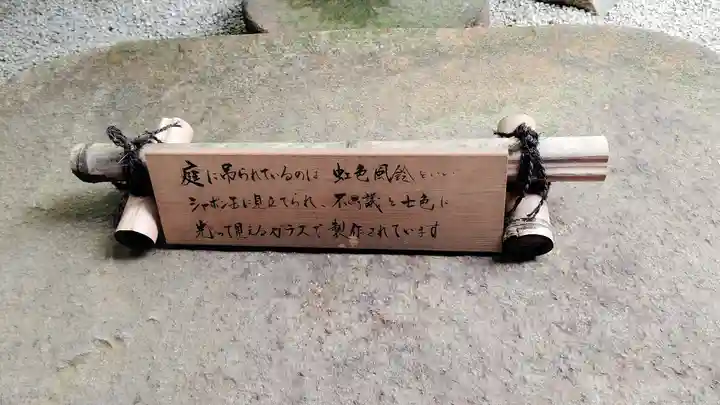 庭に吊られているのは 虹色風鈴といい
シャボン玉に見立てられ、不思議と七色に
光って見えるガラスで製作されています